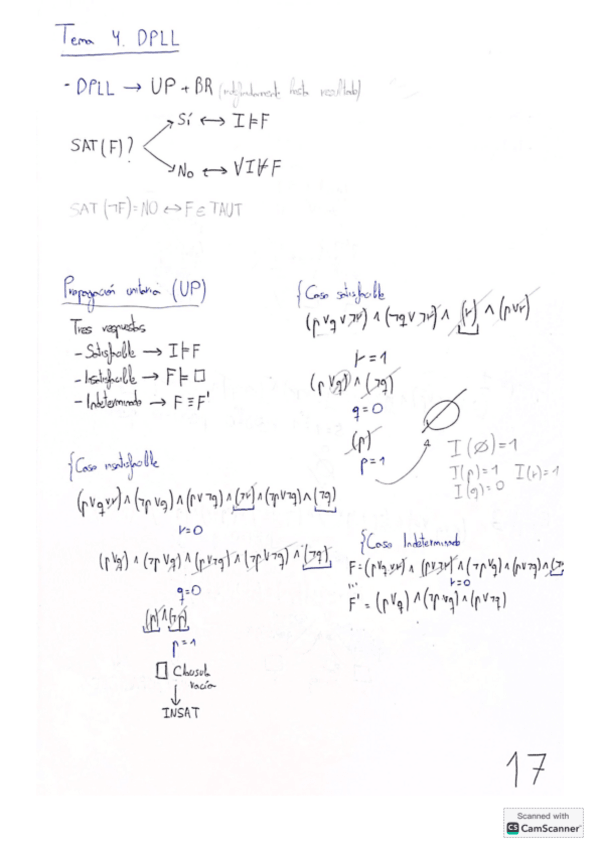 Tema 4. DPLL
- DPLL → UP + BR (indefinidamente hasta resultado)
SAT(F)?
Sí ↔ I⊨F
No ↔ ∀I⊭F
SAT(¬F)=NO ↔ F∈TAUT
Propagación unitaria (UP)
Tres respuestas
- Satisfacible → I⊨F
- Insatisfacible → F⊨□
- Indeterminado → F≡F'
{Caso satisfacible
(p∨q∨¬r) ∧ (¬q∨¬r) ∧ (r) ∧ (p∨r)
r=1
(p∨q) ∧ (¬q)
q=0
(p)
p=1
∅
I(∅)=1
I(p)=1 I(r)=1
I(q)=0
{Caso insatisfacible
(p∨q∨r) ∧ (¬p∨q) ∧ (p∨¬q) ∧ (¬r) ∧ (¬p∨¬q) ∧ (¬q)
r=0
(p∨q) ∧ (¬p∨q) ∧ (p∨¬q) ∧ (¬p∨¬q) ∧ (¬q)
q=0
(p) ∧ (¬p)
p=1
□ Clausula
vacía
↓
INSAT
{Caso Indeterminado
F=(p∨q∨r) ∧ (p∨¬r) ∧ (¬p∨q) ∧ (p∨¬q) ∧ (¬
... r=0
F' = (p∨q) ∧ (¬p∨q) ∧ (p∨¬q)
17
Scanned with
CS CamScanner